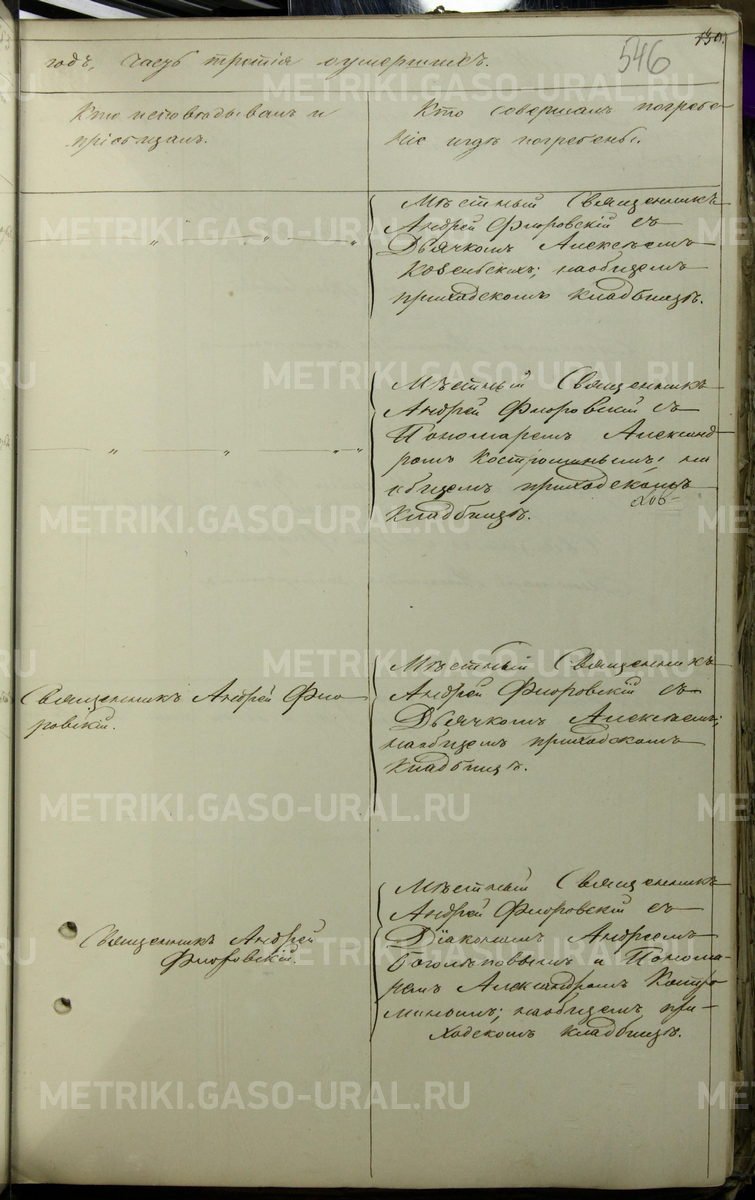 130.
546
годъ, часть третія о умершихъ.
Кто исповѣдывалъ и
пріобщалъ.
Кто совершалъ погребе-
ніе и гдѣ погребены.
Мѣстный Священникъ
Андрей Флоровскій съ
Дьячкомъ Алексѣемъ
наобщемъ
приходскомъ кладбищѣ.
Мѣстный Священникъ
Андрей Флоровскій съ
Пономаремъ Александ-
ромъ Костроминымъ; на
общемъ приходскомъ
кладбищѣ.
Священникъ Андрей Фло-
ровскій.
Мѣстный Священникъ
Андрей Флоровскій съ
Дьячкомъ Алексѣемъ;
наобщемъ приходскомъ
кладбищѣ.
Священникъ Андрей
Флоровскій.
Мѣстный Священникъ
Андрей Флоровскій съ
Діакономъ Андреемъ
Боголѣповымъ и Понома-
ремъ Александромъ Костро-
минымъ; наобщемъ при-
ходскомъ кладбищѣ.
METRIKI.GASO-URAL.RU
METRIKI.GASO-URAL.RU
METRIKI.GASO-URAL.RU
METRIKI.GASO-URAL.RU
METRIKI.GASO-URAL.RU
METRIKI.GASO-URAL.RU
METRIKI.GASO-URAL.RU
METRIKI.GASO-URAL.RU